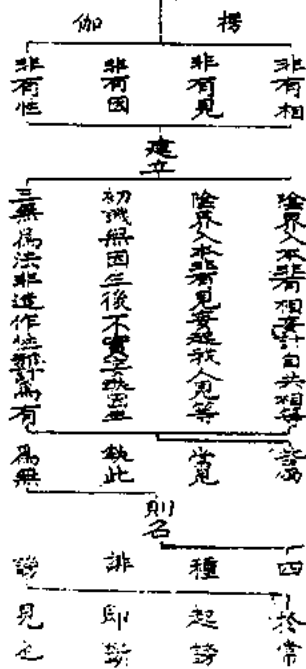 楞伽
非有相
非有見
非有因
非有性
建立
陰界入本非有相妄計自共相等
陰界入本非有見妄起我人見等
初識無因生後不實妄執因
三無爲法非造作性計爲有
執此
爲無
則名
四種誹謗
於常
起謗
即斷
見之